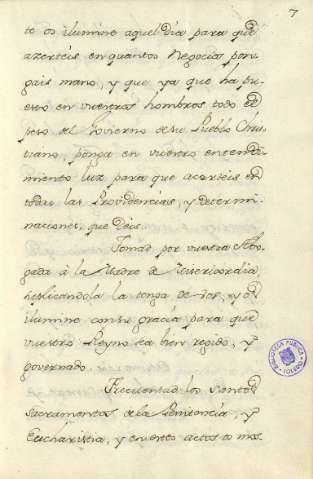 7
to os ilumine aquel Dia para que
azerteis en quantos Negocios pon-
gais mano, y que ya que ha pu-
esto en vuestros hombros todo el
peso del Govierno de su Pueblo Chris-
tiano, ponga en vuestro entendi-
miento luz para que acerteis en
todas las Providencias, y determi-
naciones, que deis.
Tomad por vuestra Abo-
gada à la Madre de Misericordia,
suplicandola la tenga de Vos, y os
ilumine con su gracia para que
vuestro Reyno sea bien regido, y
governado.
Frecuentad los Santos
Sacramentos de la Penitencia, y
Eucharistia, y en estos actos to mos-
BIBLIOTECA PUBLICA
TOLEDO